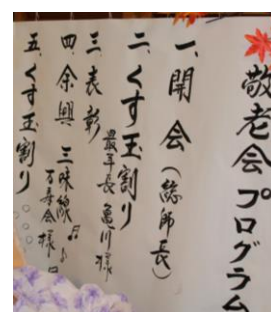 敬老会プログラム
一、開会(総師長)
二、くす玉割り
三、表彰
最年長 亀川様
四、余興 三味線
万寿会様
五、くす玉割り